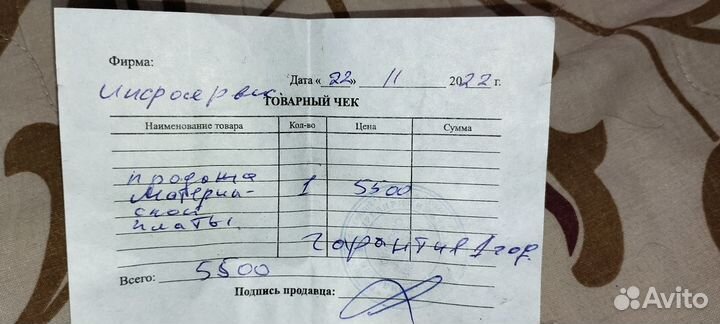 Фирма:
Дата «22» 11 2022 г.
Инфосервис
ТОВАРНЫЙ ЧЕК
Наименование товара Кол-во Цена Сумма
продажа
Материн- 1 5500
ской
платы.
гарантия 1 год.
Всего: 5500
Подпись продавца:
Avito